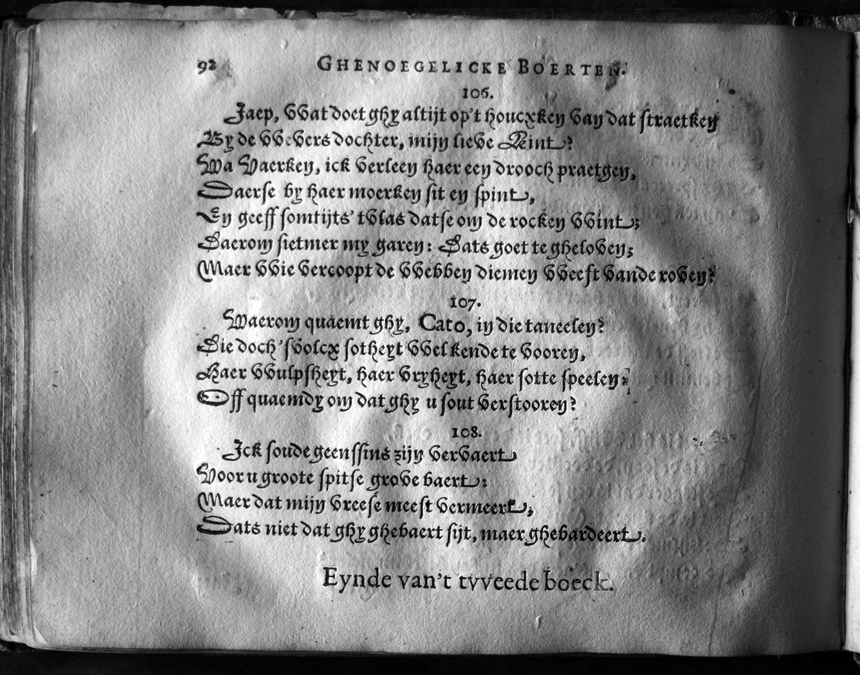 92 GHENOEGELICKE BOERTEN.
106.
Jaep, VVat doet ghy altijt op't houcxken van dat straetken
By de VVevers dochter, mijn lieve Quint?
Wa Vaerken, ick verleen haer een drooch praetgen,
Daerse by haer moerken sit en spint,
En geeff somtijts't vlas datse om de rocken VVint;
Daerom sietmer my garen: Dats goet te gheloven;
Maer VVie vercoopt de VVebben diemen VVeeft vande roven?
107.
Waerom quaemt ghy, Cato, in die taneelen?
Die doch 'svolcx sotheyt VVel kende te vooren,
Haer VVulpsheyt, haer vryheyt, haer sotte speelen:
Off quaemdy om dat ghy u sout verstooren?
108.
Ick soude geenssins zijn vervaert
Voor u groote spitse grove baert:
Maer dat mijn vreese meest vermeert,
Dats niet dat ghy ghebaert sijt, maer ghebardeert.
Eynde van't tvveede boeck.